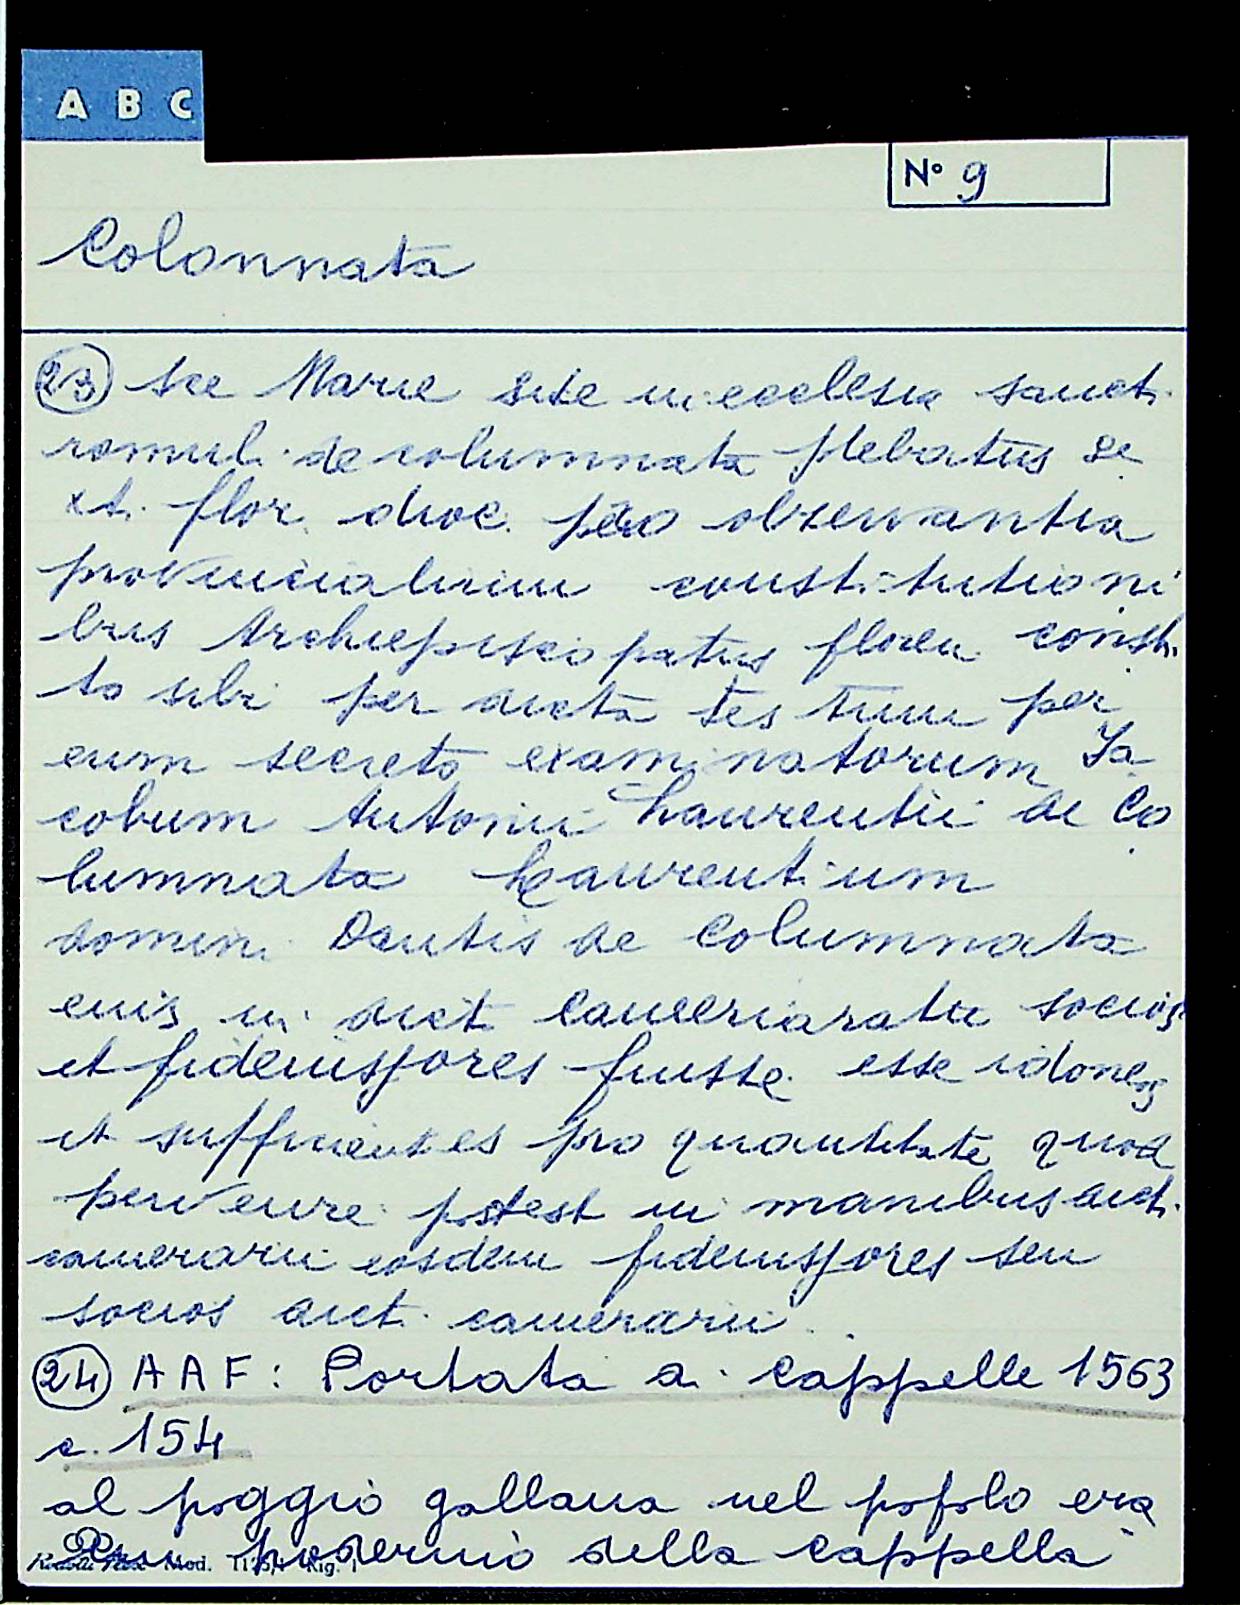 A B C
N° 9
Colonnata
23 sce Marie site in ecclesia sanct.
romul. de columnata plebatus se
xt. flor. dioc. pro observantia
provincialium constitutioni
bus Archiepiscopatus floren. consti
to sibi per dicta tes tium per
eum secreto examinatorum Ja
cobum Antonii Laurentii de Co
lumnata Laurentium
domin. Dantis de Columnata
euis in dict camerariatu socios
et fideiussores fuisse esse idoneos
et sufficientes pro quantitate quod
pervenire potest in manibus dict.
camerarii eosdem fideiussores seu
socios dict. camerarii
24 AAF: Portata a. Cappelle 1563
c. 154
al poggio gallana nel popolo era
un poderino della cappella
Mod. Rig. 1